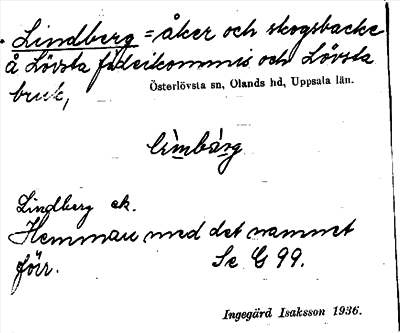 Lindberg = åker och skogsbacke
å Lövsta fideikommis och Lövsta
bruk,
Österlövsta sn, Olands hd, Uppsala län.
lìmbárg
Lindberg ek.
Hemman med det namnet
förr. Se G 99.
Ingegärd Isaksson 1936.